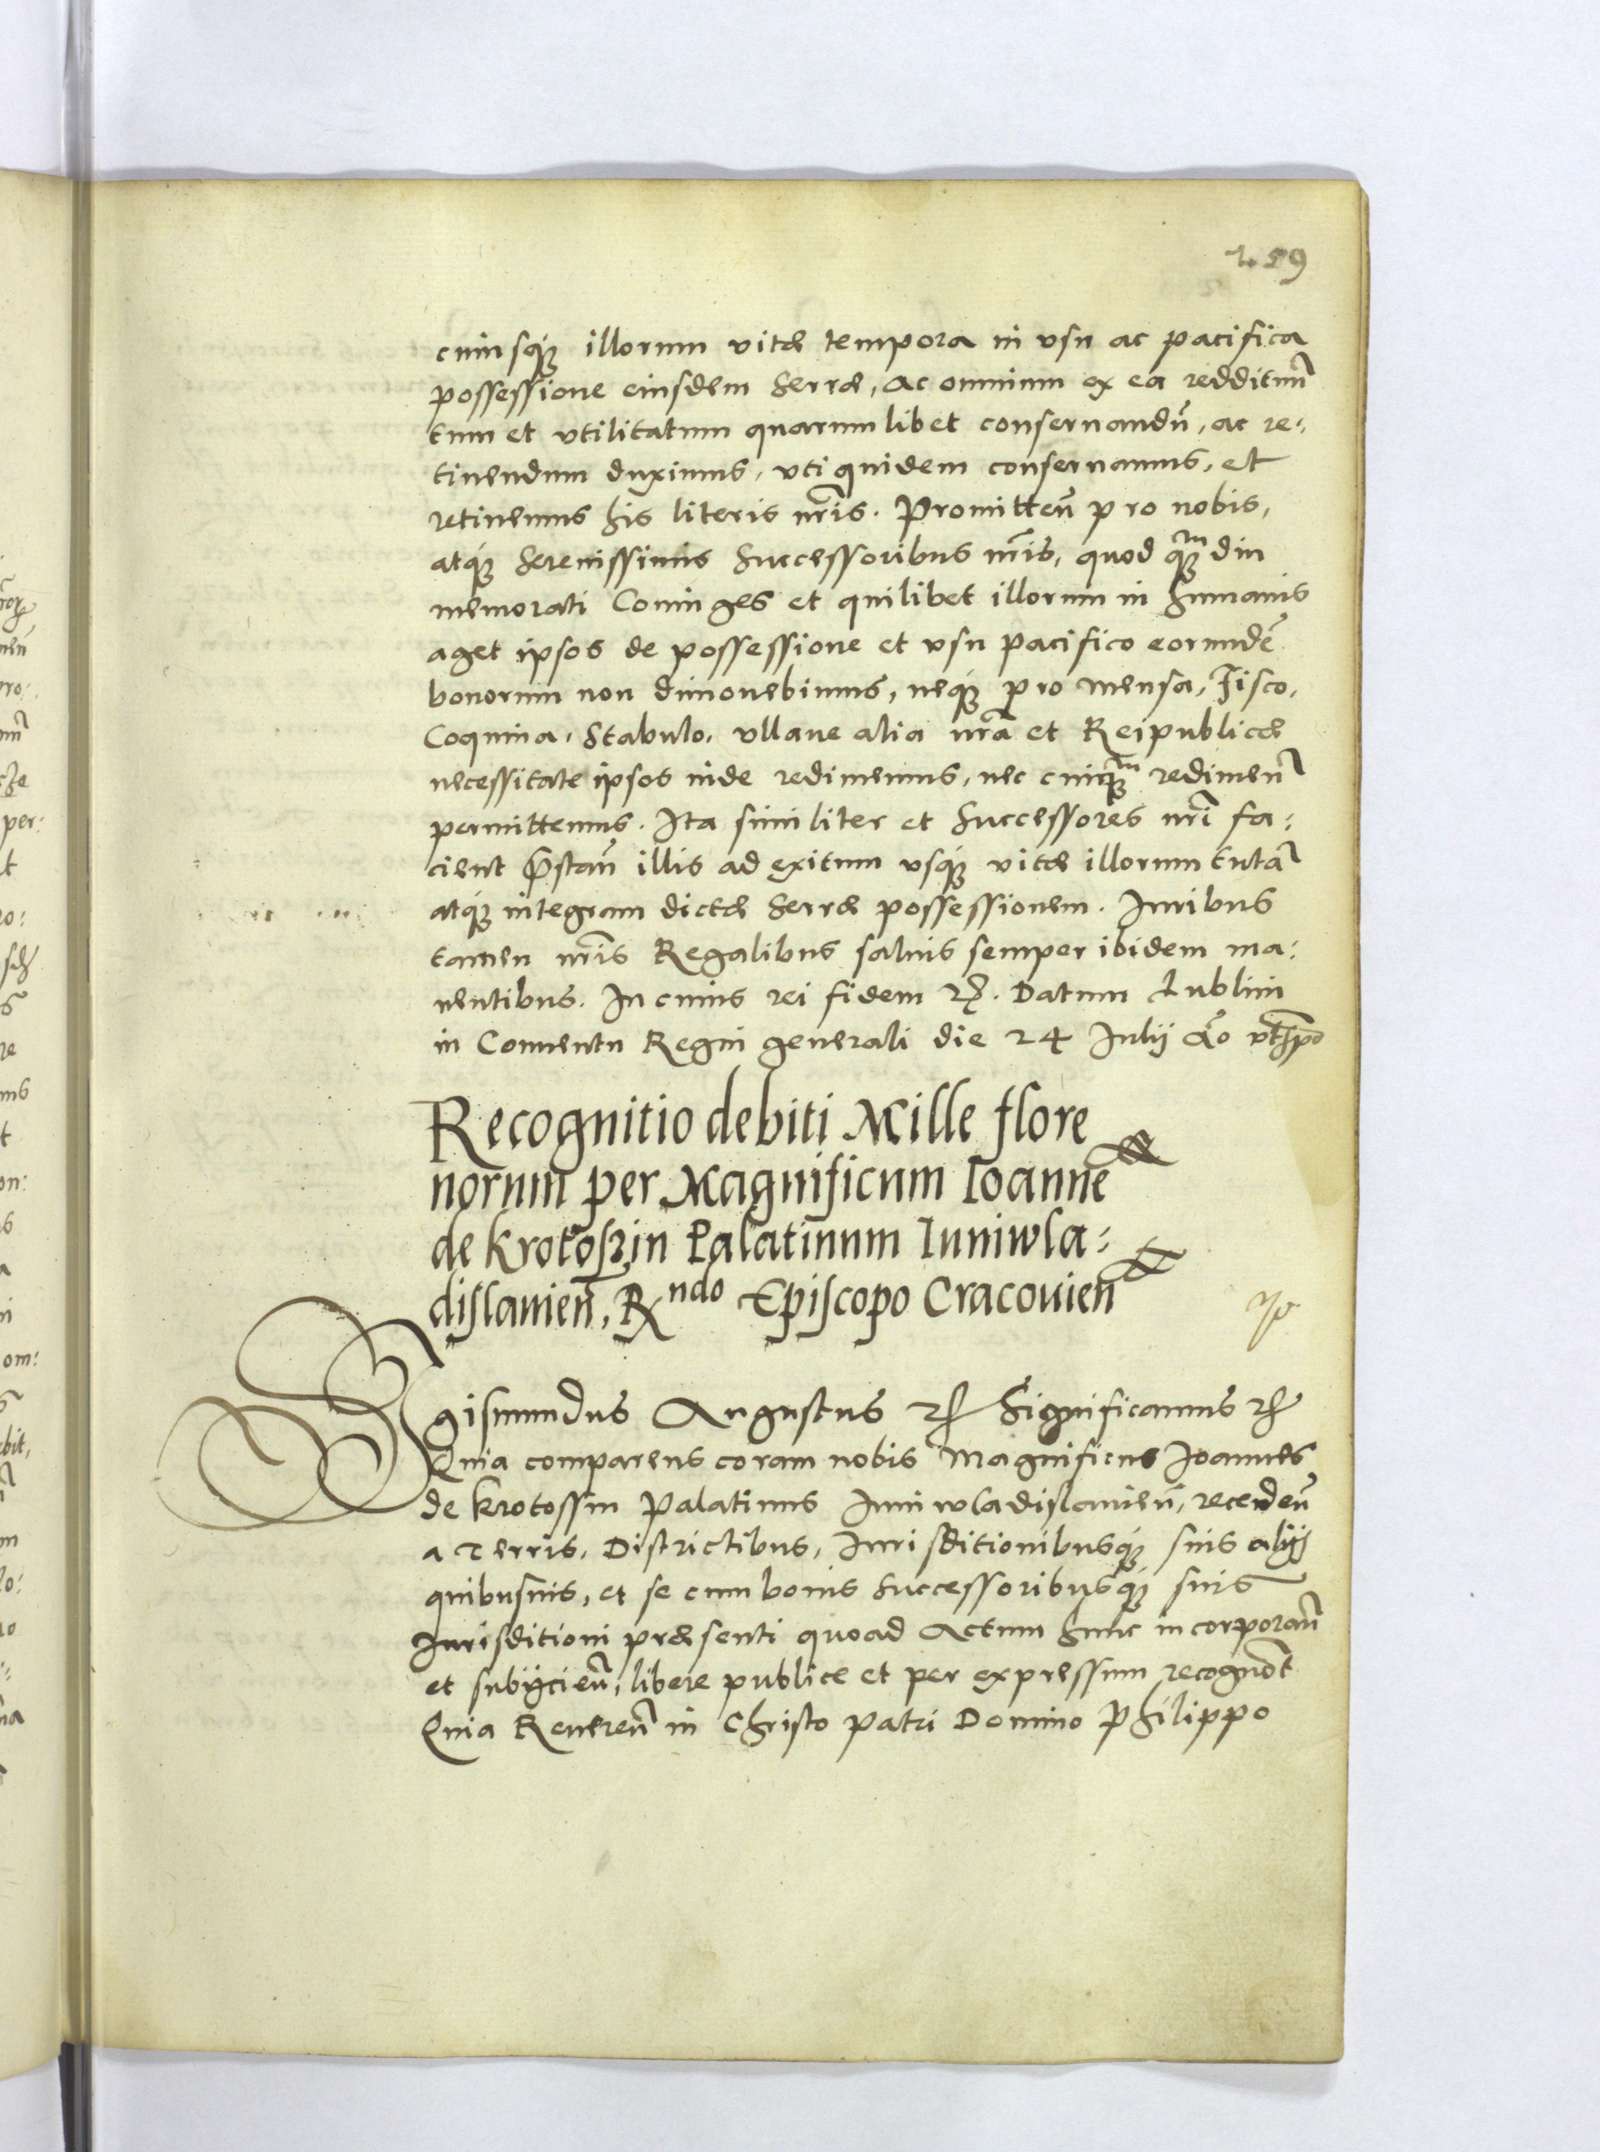 159
cuiusque illorum vitæ tempora in vsu ac pacifica
possessione eiusdem Serræ, ac omnium ex ea reddituũ
tum et vtilitatum quarumlibet conseruandũ, ac re-
tinendum duximus, vti quidem conseruamus, et
retinemus his literis nr̃is. Promitteñ pro nobis,
atque Serenissimis Successoribus nr̃is, quod quamdiu
memorati Coniuges et quilibet illorum in humanis
aget ipsos de possessione et vsu pacifico eorundẽ
bonorum non dimouebimus, neque pro mensa, Fisco,
Coquina, Stabulo, vllaue alia nr̃a et Reipublicæ
necessitate ipsos inde redimemus, nec cuiquam redimeñ
permittemus. Ita similiter et Successores nr̃i fa-
cient p̃stañ illis ad exitum vsque vitæ illorum tutã
atque integram dictæ Serræ possessionem. Iuribus
tamen nr̃is Regalibus saluis semper ibidem ma-
nentibus. In cuius rei fidem etc. Datum Lublini
in Conuentu Regni generali die 24 Iulij
Recognitio debiti Mille flore
norum per Magnificum Ioannẽ
de Krotoszin Palatinum Iuniwla-
dislauieñ, Rndo Episcopo Cracouieñ
Sigismundus Augustus etc Significamus etc
Quia comparens coram nobis Magnificus Joannes
de Krotossin Palatinus Iuniwladislauieñ, recedeñ
a Terris, Districtibus, Iurisditionibusque suis alijs
quibusuis, et se cum bonis Successoribusque suis
Iurisditioni præsenti quoad Actum hunc incorporañ
et subijcieñ, libere publice et per expressum recognõt
Quia Reuereñ in Christo patri Domino Philippo